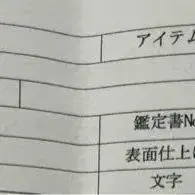 アイテム
鑑定書No
表面仕上げ
文字